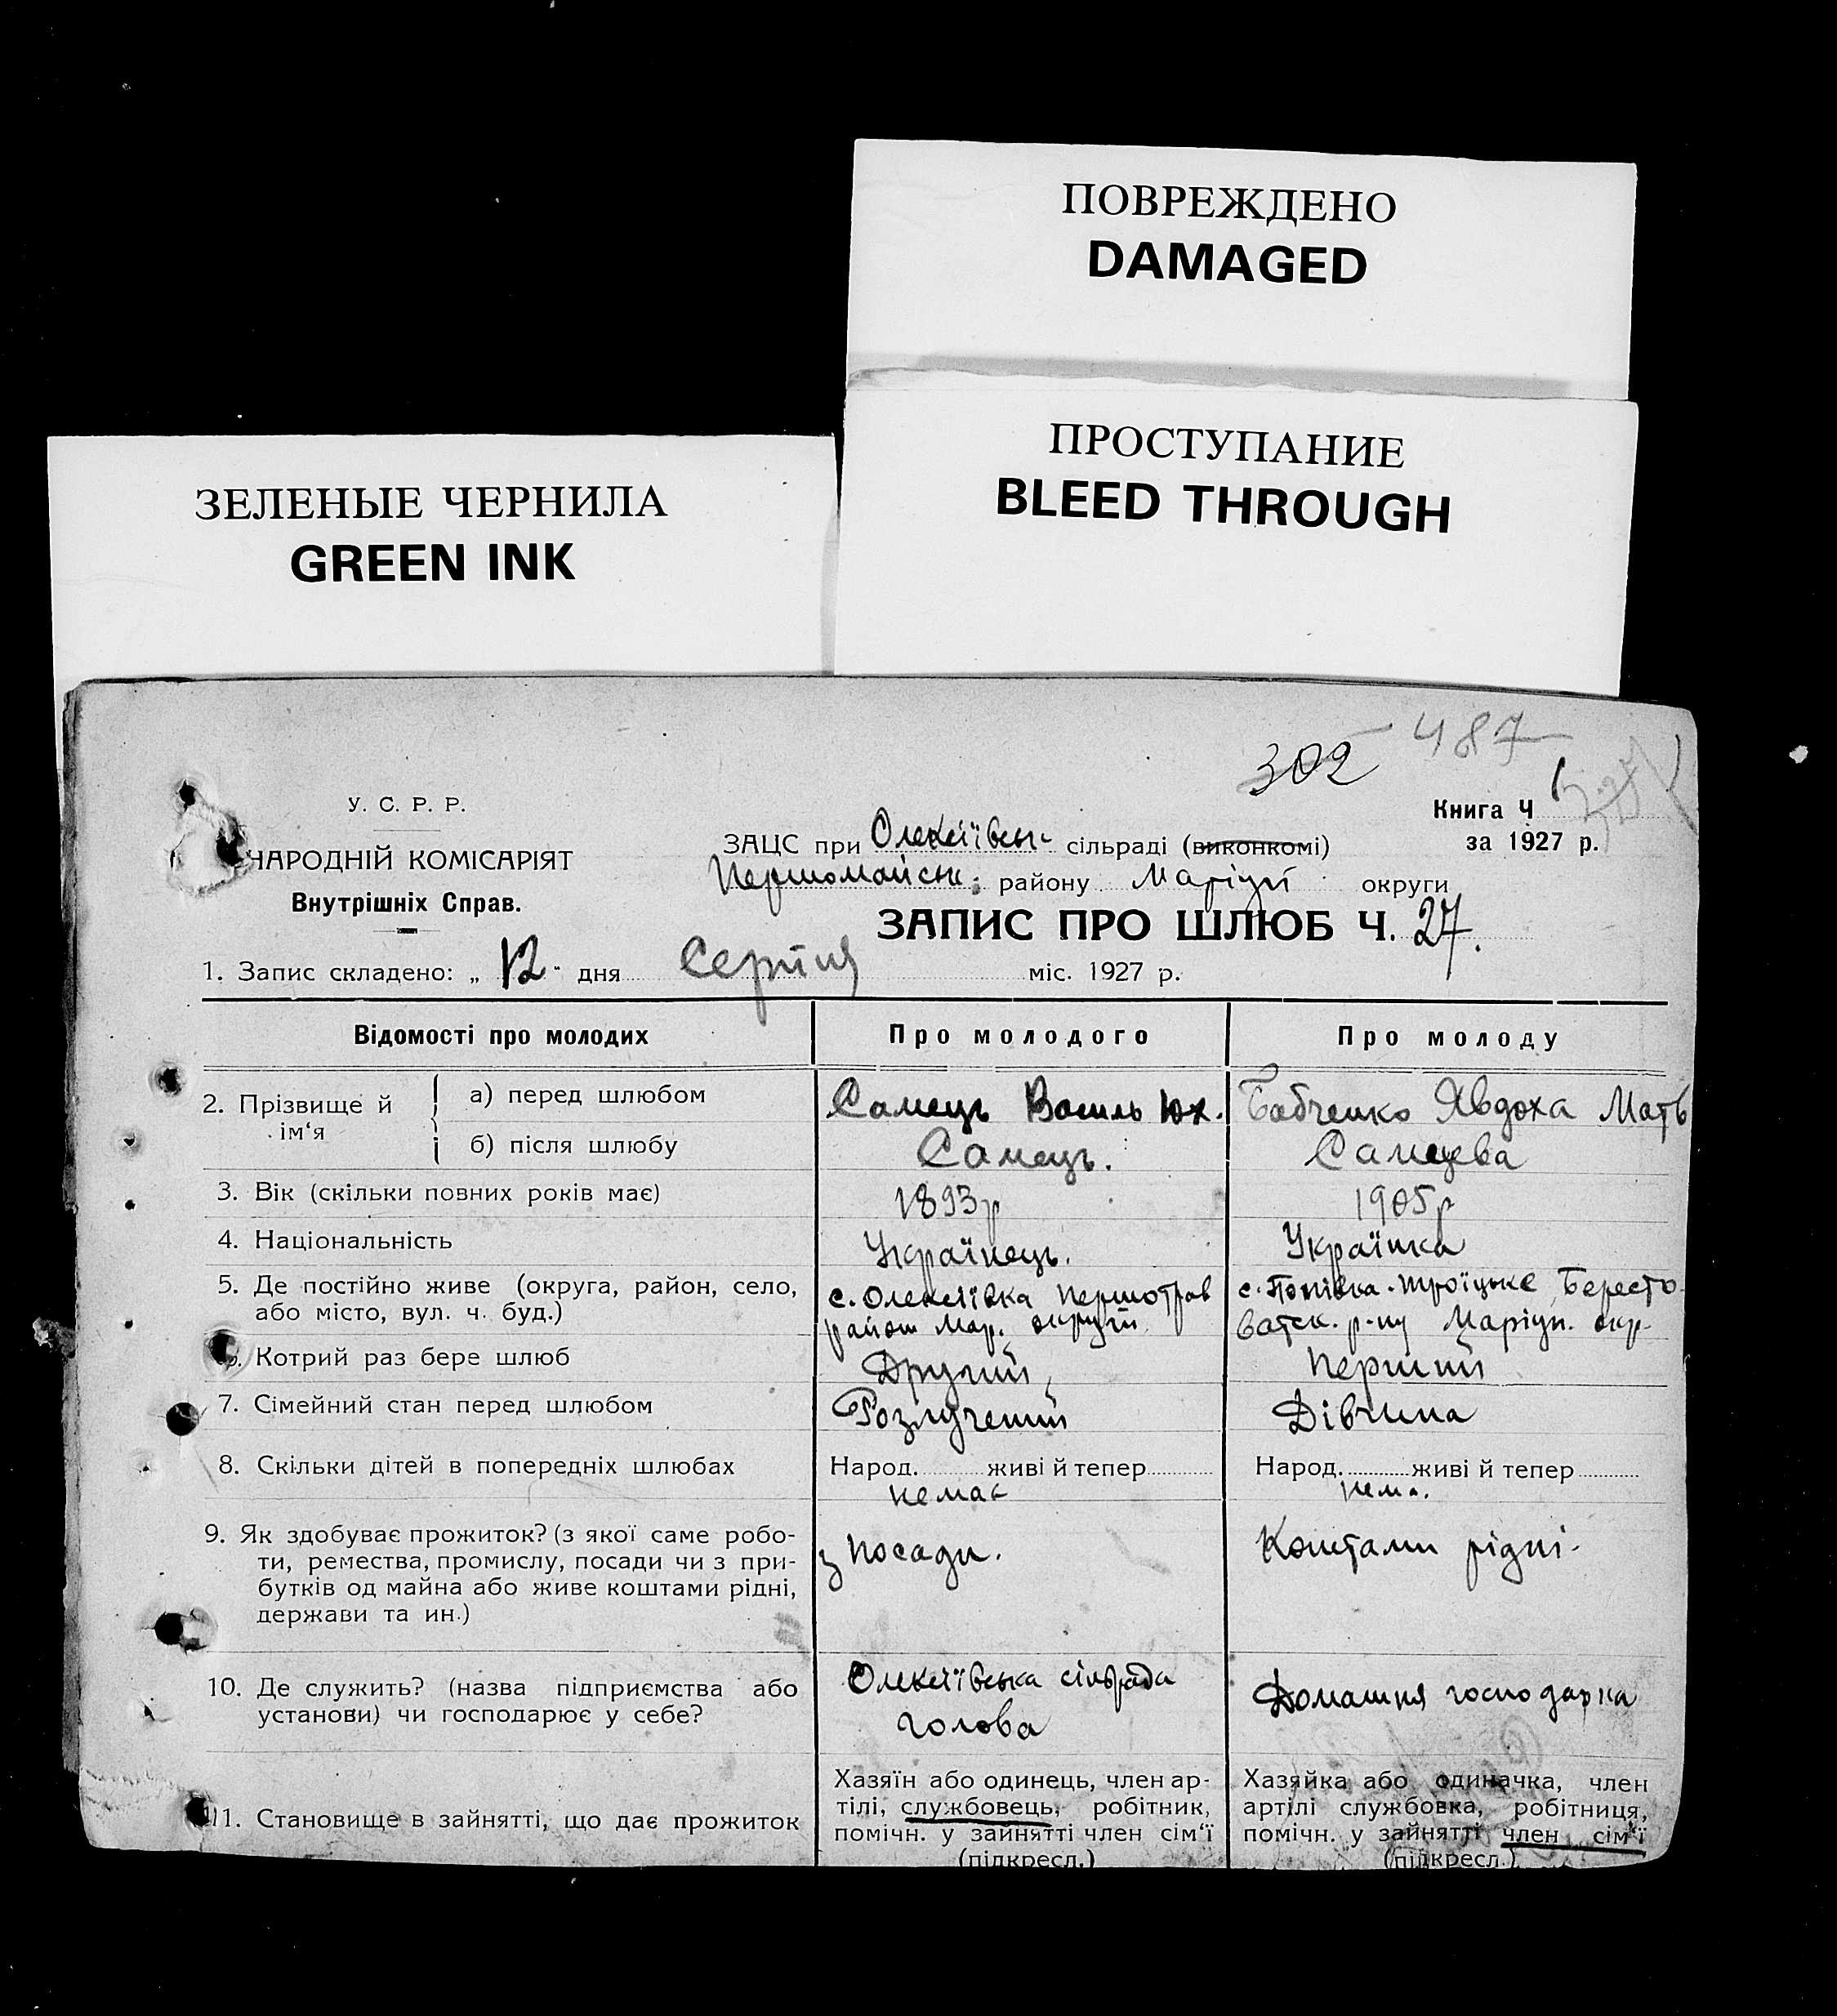 ПОВРЕЖДЕНО
DAMAGED
ПРОСТУПАНИЕ
BLEED THROUGH
ЗЕЛЕНЫЕ ЧЕРНИЛА
GREEN INK
302 487
У. С. Р. Р.
НАРОДНІЙ КОМІСАРІЯТ
Внутрішніх Справ.
Книга Ч
за 1927 р.
ЗАЦС при Олексіївськ сільраді (виконкомі)
Першомайськ. району Маріуп округи
ЗАПИС ПРО ШЛЮБ Ч. 27.
1. Запис складено: „ 12 " дня Серпня міс. 1927 р.
Відомості про молодих Про молодого Про молоду
2. Прізвище й ім'я
а) перед шлюбом Самець Василь Юх. Бабченко Явдоха Матв
б) після шлюбу Самець. Самцева
3. Вік (скільки повних років має) 1893р 1905р
4. Національність Українець. Українка
5. Де постійно живе (округа, район, село, або місто, вул. ч. буд.)
с. Олексіївка Першотрав
район Мар. округи
с. Попівка-Троїцьке Бересто-
ватск. р-ну Маріуп. окр.
6. Котрий раз бере шлюб Другий Перший
7. Сімейний стан перед шлюбом Розлучений Дівчина
8. Скільки дітей в попередніх шлюбах Народ. живі й тепер Народ. живі й тепер
немає нема.
9. Як здобуває прожиток? (з якої саме робо-
ти, ремества, промислу, посади чи з при-
бутків од майна або живе коштами рідні,
держави та ин.)
з посади.
Коштами рідні.
10. Де служить? (назва підприємства або
установи) чи господарює у себе?
Олексіївська сільрада
голова
Домашня господарка
11. Становище в зайнятті, що дає прожиток
Хазяїн або одинець, член ар-
тілі, службовець, робітник,
помічн. у зайнятті член сім'ї
(підкресл.)
Хазяйка або одиначка, член
артілі службовка, робітниця,
помічн. у зайнятті член сім'ї
(підкресл.)